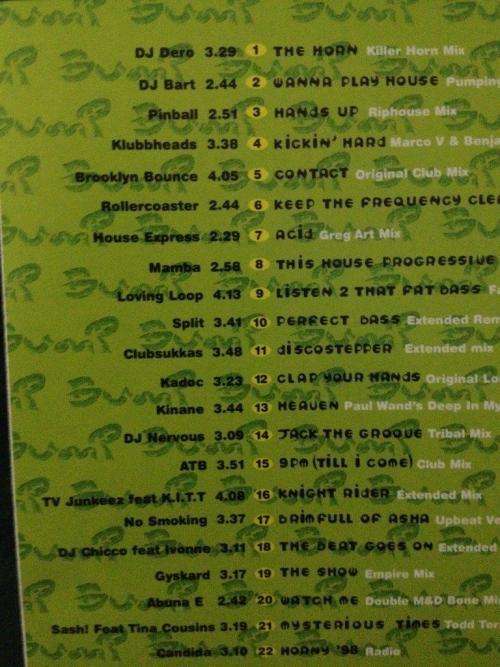 DJ Dero 3.29 1 THE HORN Killer Horn Mix
DJ Bart 2.44 2 WANNA PLAY HOUSE Pumping
Pinball 2.51 3 HANDS UP Riphouse Mix
Klubbheads 3.38 4 KICKIN' HARD Marco V & Benja
Brooklyn Bounce 4.05 5 CONTACT Original Club Mix
Rollercoaster 2.44 6 KEEP THE FREQUENCY CLEA
House Express 2.29 7 ACID Greg Art Mix
Mamba 2.58 8 THIS HOUSE PROGRESSIVE
Loving Loop 4.13 9 LISTEN 2 THAT FAT BASS
Split 3.41 10 PERFECT BASS Extended Rem
Clubsukkas 3.48 11 DISCOSTEPPER Extended mix
Kadoc 3.23 12 CLAP YOUR HANDS Original Lo
Kinane 3.44 13 HEAVEN Paul Wand's Deep In My
DJ Nervous 3.09 14 JACK THE GROOVE Tribal Mix
ATB 3.51 15 9PM (TILL I COME) Club Mix
TV Junkeez feat K.I.T.T 4.08 16 KNIGHT RIDER Extended Mix
No Smoking 3.37 17 BRIMFULL OF ASHA Upbeat Ve
DJ Chicco feat Ivonne 3.11 18 THE BEAT GOES ON Extended
Gyskard 3.17 19 THE SHOW Empire Mix
Abuna E 2.42 20 WATCH ME Double M&D Bone Mi
Sash! Feat Tina Cousins 3.19 21 MYSTERIOUS TIMES Todd Ter
Candida 3.10 22 HORNY '98 Radio